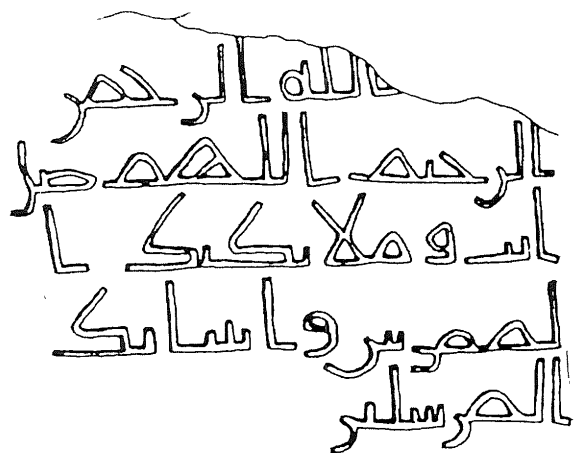 الله الرحمن
الرحيم اللهم صل
انت وملائكتك ا
لمقربين وانبيائك
المرسلين